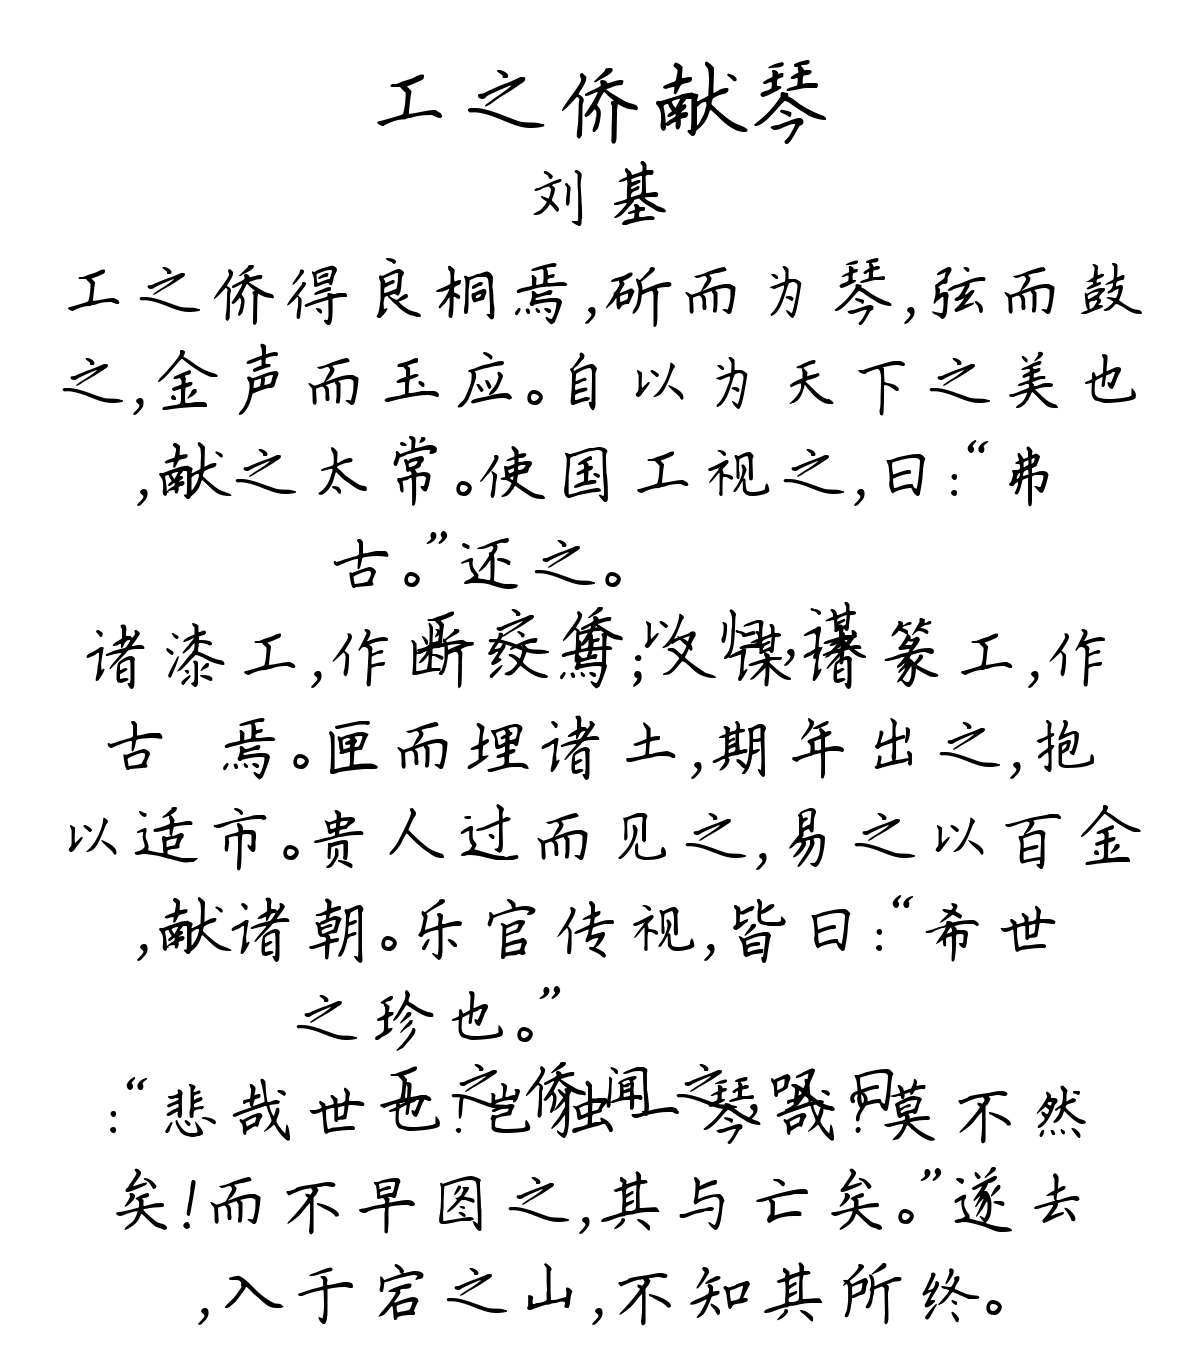 工之侨献琴
刘基
工之侨得良桐焉,斫而为琴,弦而鼓
之,金声而玉应。自以为天下之美也
,献之太常。使国工视之,曰:“弗
古。”还之。
工之侨以归,谋
诸漆工,作断纹焉;又谋诸篆工,作
古 焉。匣而埋诸土,期年出之,抱
以适市。贵人过而见之,易之以百金
,献诸朝。乐官传视,皆曰:“希世
之珍也。”
工之侨闻之,叹曰
:“悲哉世也!岂独一琴哉?莫不然
矣!而不早图之,其与亡矣。”遂去
,入于宕之山,不知其所终。